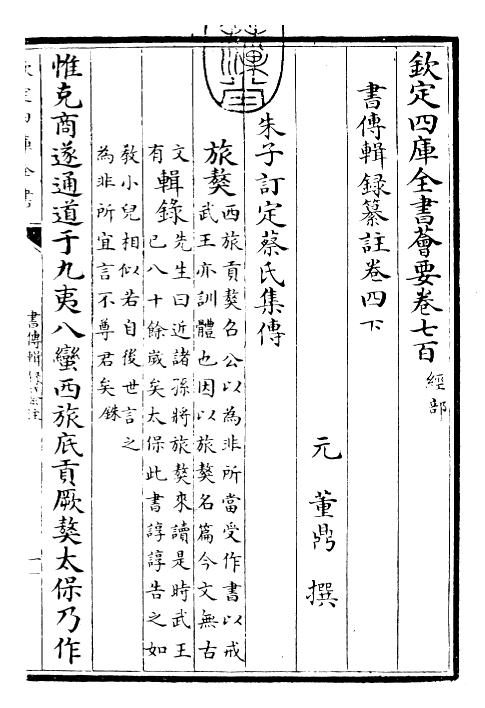 欽定四庫全書薈要卷七百 經部
書傳輯録纂註卷四下
元 董鼎 撰
朱子訂定蔡氏集傳
旅獒 西旅貢獒召公以為非所當受作書以戒
武王亦訓體也因以旅獒名篇今文無古
文有 輯錄 先生曰近諸孫將旅獒來讀是時武王
已八十餘歲矣太保此書諄諄告之如
教小兒相似若自後世言之
為非所宜言不尊君矣銖
惟克商遂通道于九夷八蠻西旅底貢厥獒太保乃作
欽定四庫全書
書傳輯録纂註
一